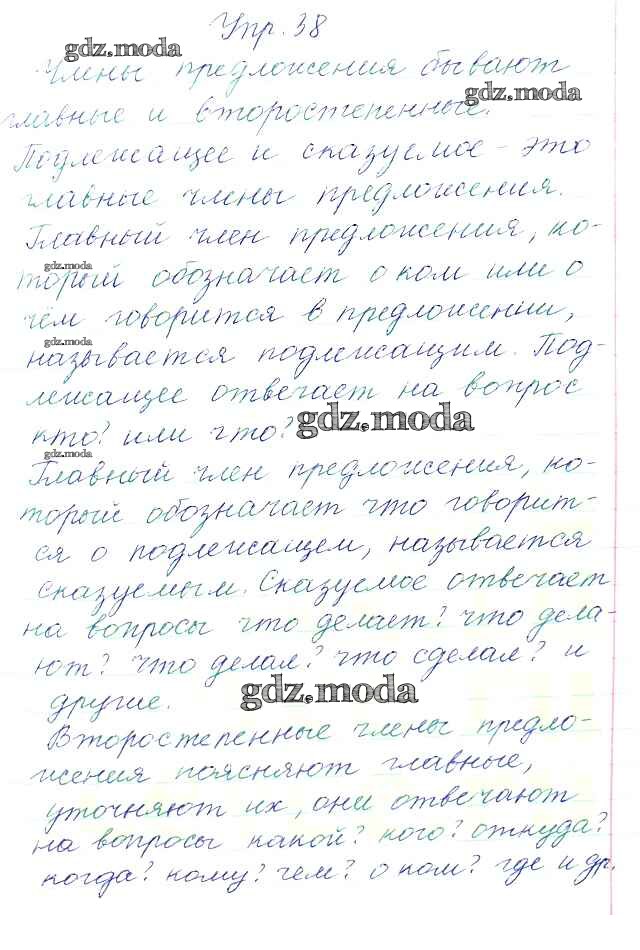 Упр. 38
gdz.moda
Члены предложения бывают
gdz.moda
главные и второстепенные.
Подлежащее и сказуемое - это
главные члены предложения.
Главный член предложения, ко-
gdz.moda
торый обозначает о ком или о
чём говорится в предложении,
gdz.moda
называется подлежащим. Под-
лежащее отвечает на вопрос
кто? или что?
gdz.moda
gdz.moda
Главный член предложения, ко-
торый обозначает что говорит-
ся о подлежащем, называется
сказуемым. Сказуемое отвечает
на вопросы что делает? что дела-
ют? что делал? что сделал? и
другие.
gdz.moda
Второстепенные члены предло-
жения поясняют главные,
уточняют их, они отвечают
на вопросы какой? кого? откуда?
когда? кому? чем? о ком? где и др.